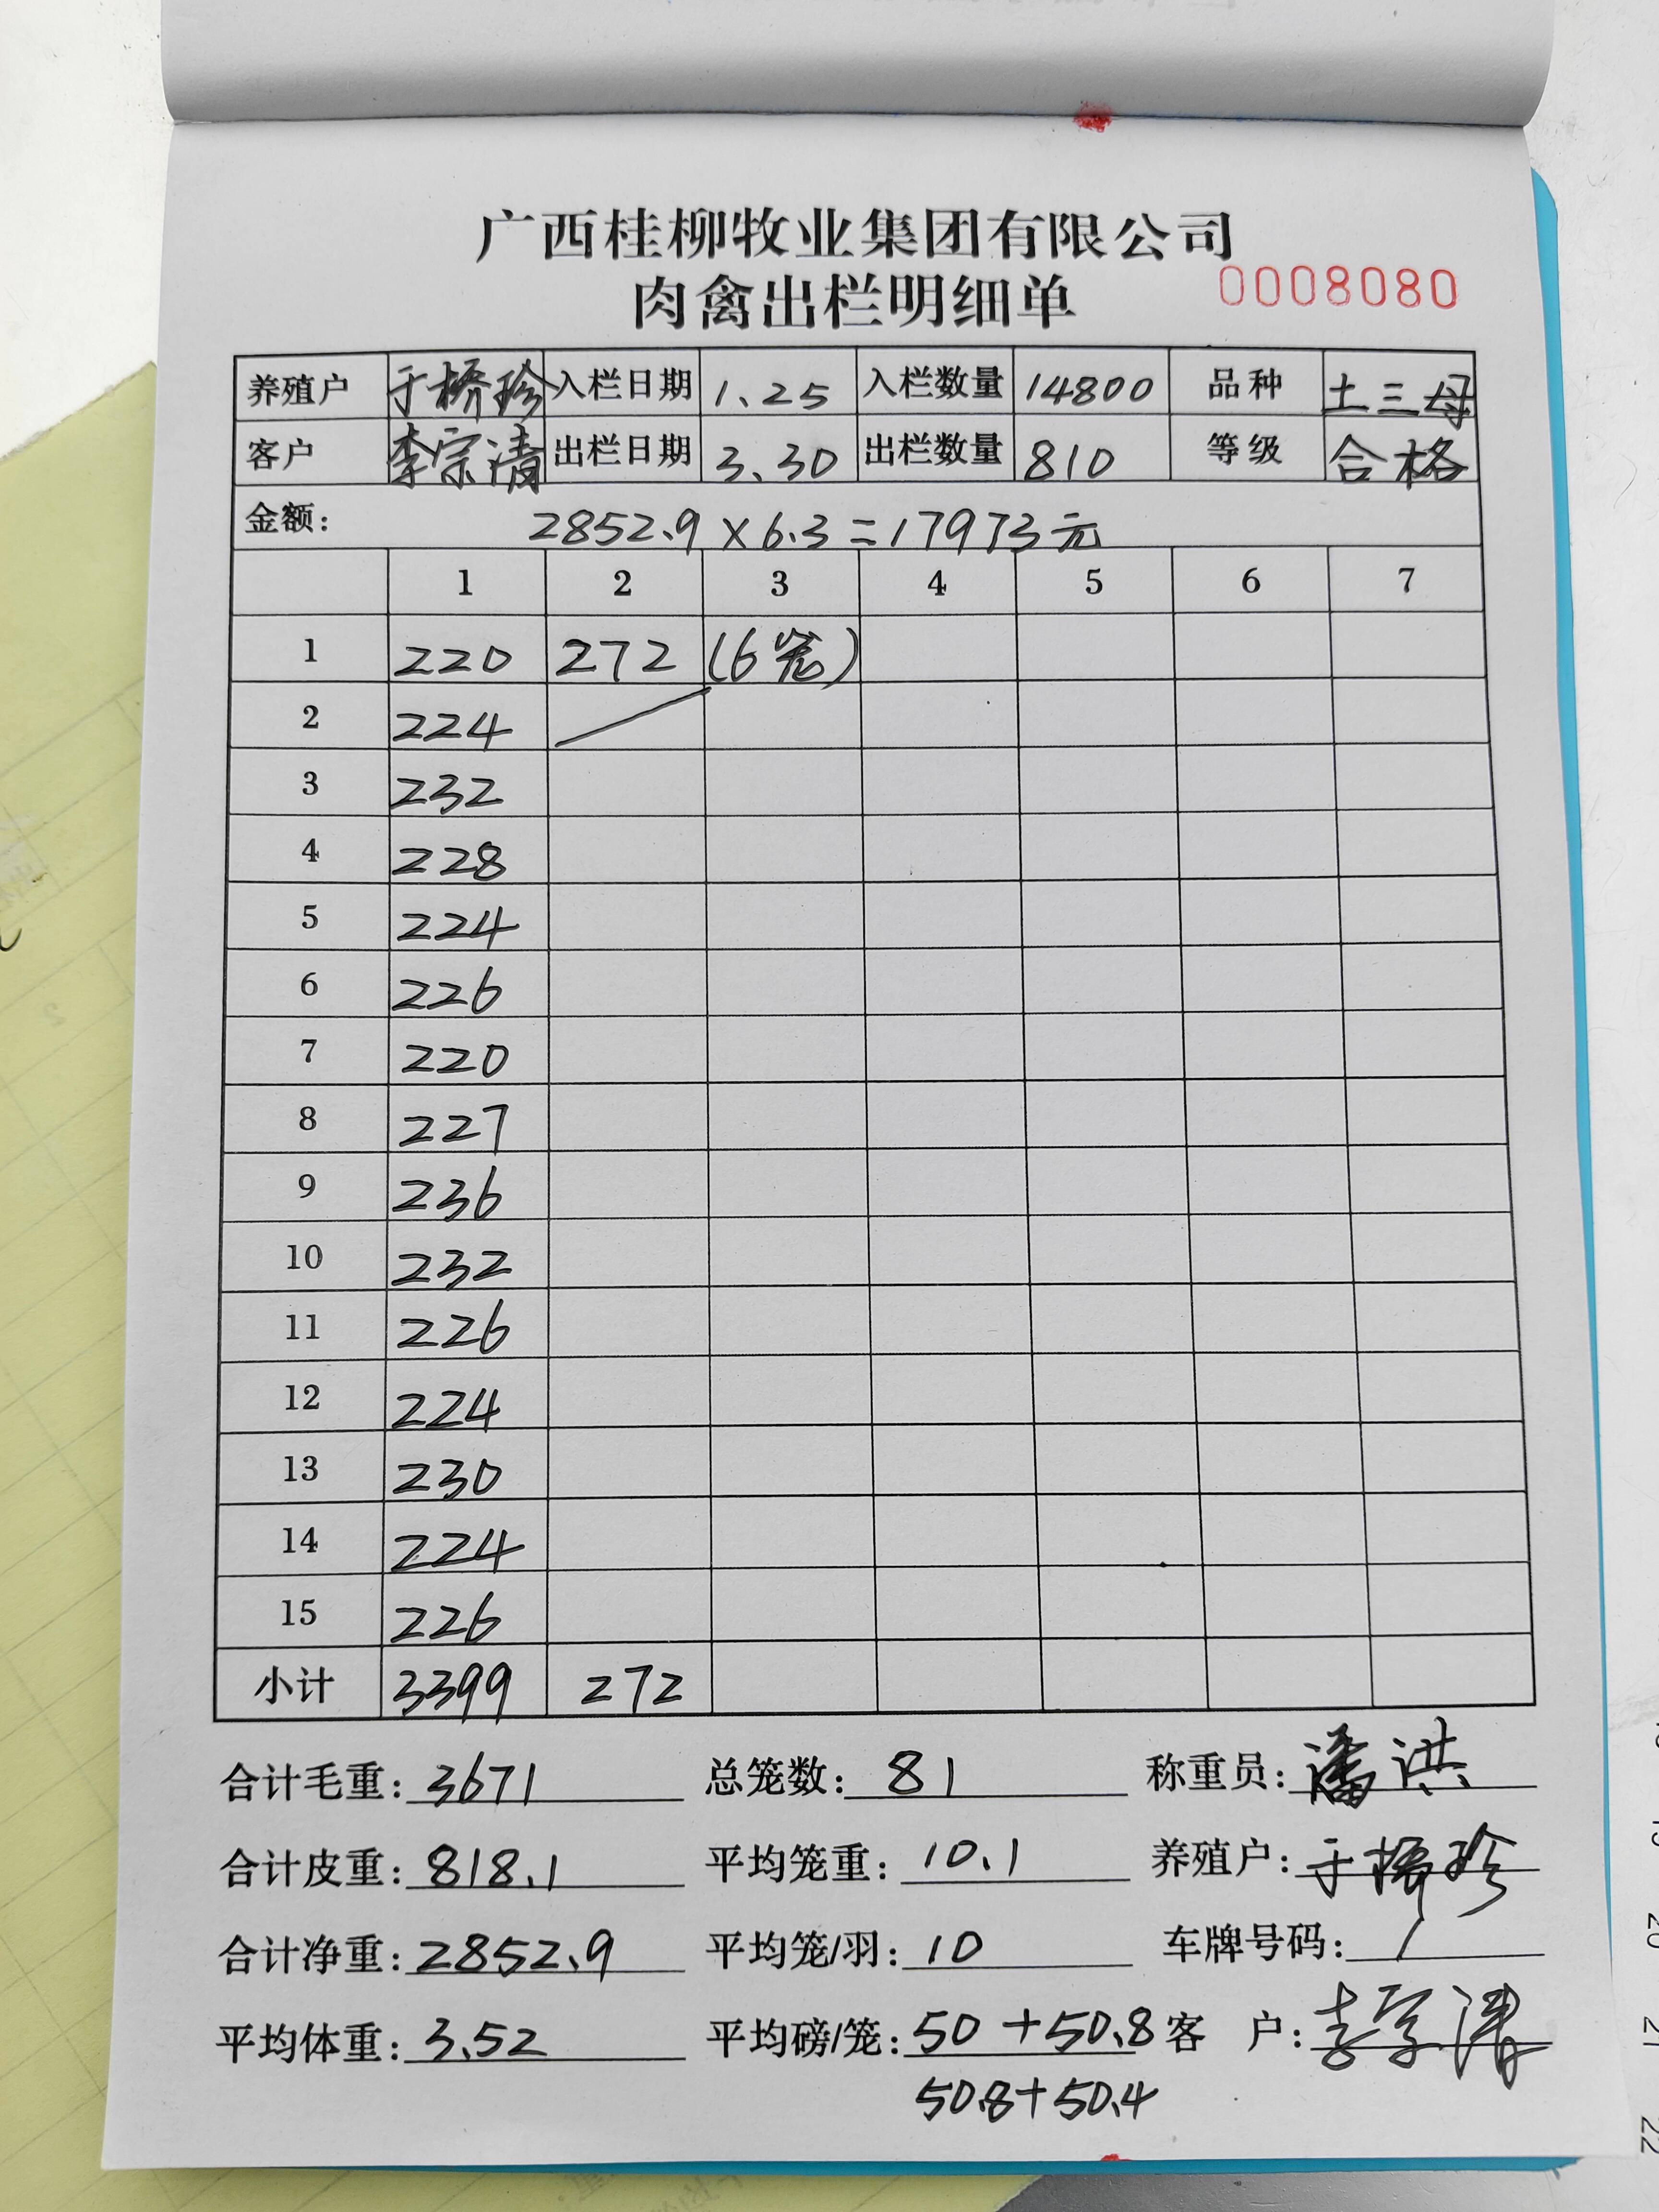 广西桂柳牧业集团有限公司
肉禽出栏明细单 0008080
养殖户 于桥珍 入栏日期 1.25 入栏数量 14800 品种 土三母
客户 李宗清 出栏日期 3.30 出栏数量 810 等级 合格
金额: 2852.9×6.3=17973元
1 2 3 4 5 6 7
1 220 272 (6笼)
2 224
3 232
4 228
5 224
6 226
7 220
8 227
9 236
10 232
11 226
12 224
13 230
14 224
15 226
小计 3399 272
合计毛重: 3671 总笼数: 81 称重员: 潘洪
合计皮重: 818.1 平均笼重: 10.1 养殖户: 于桥珍
合计净重: 2852.9 平均笼/羽: 10 车牌号码: /
平均体重: 3.52 平均磅/笼: 50+50.8 客 户: 李宗清
50.8+50.4
20
21
22